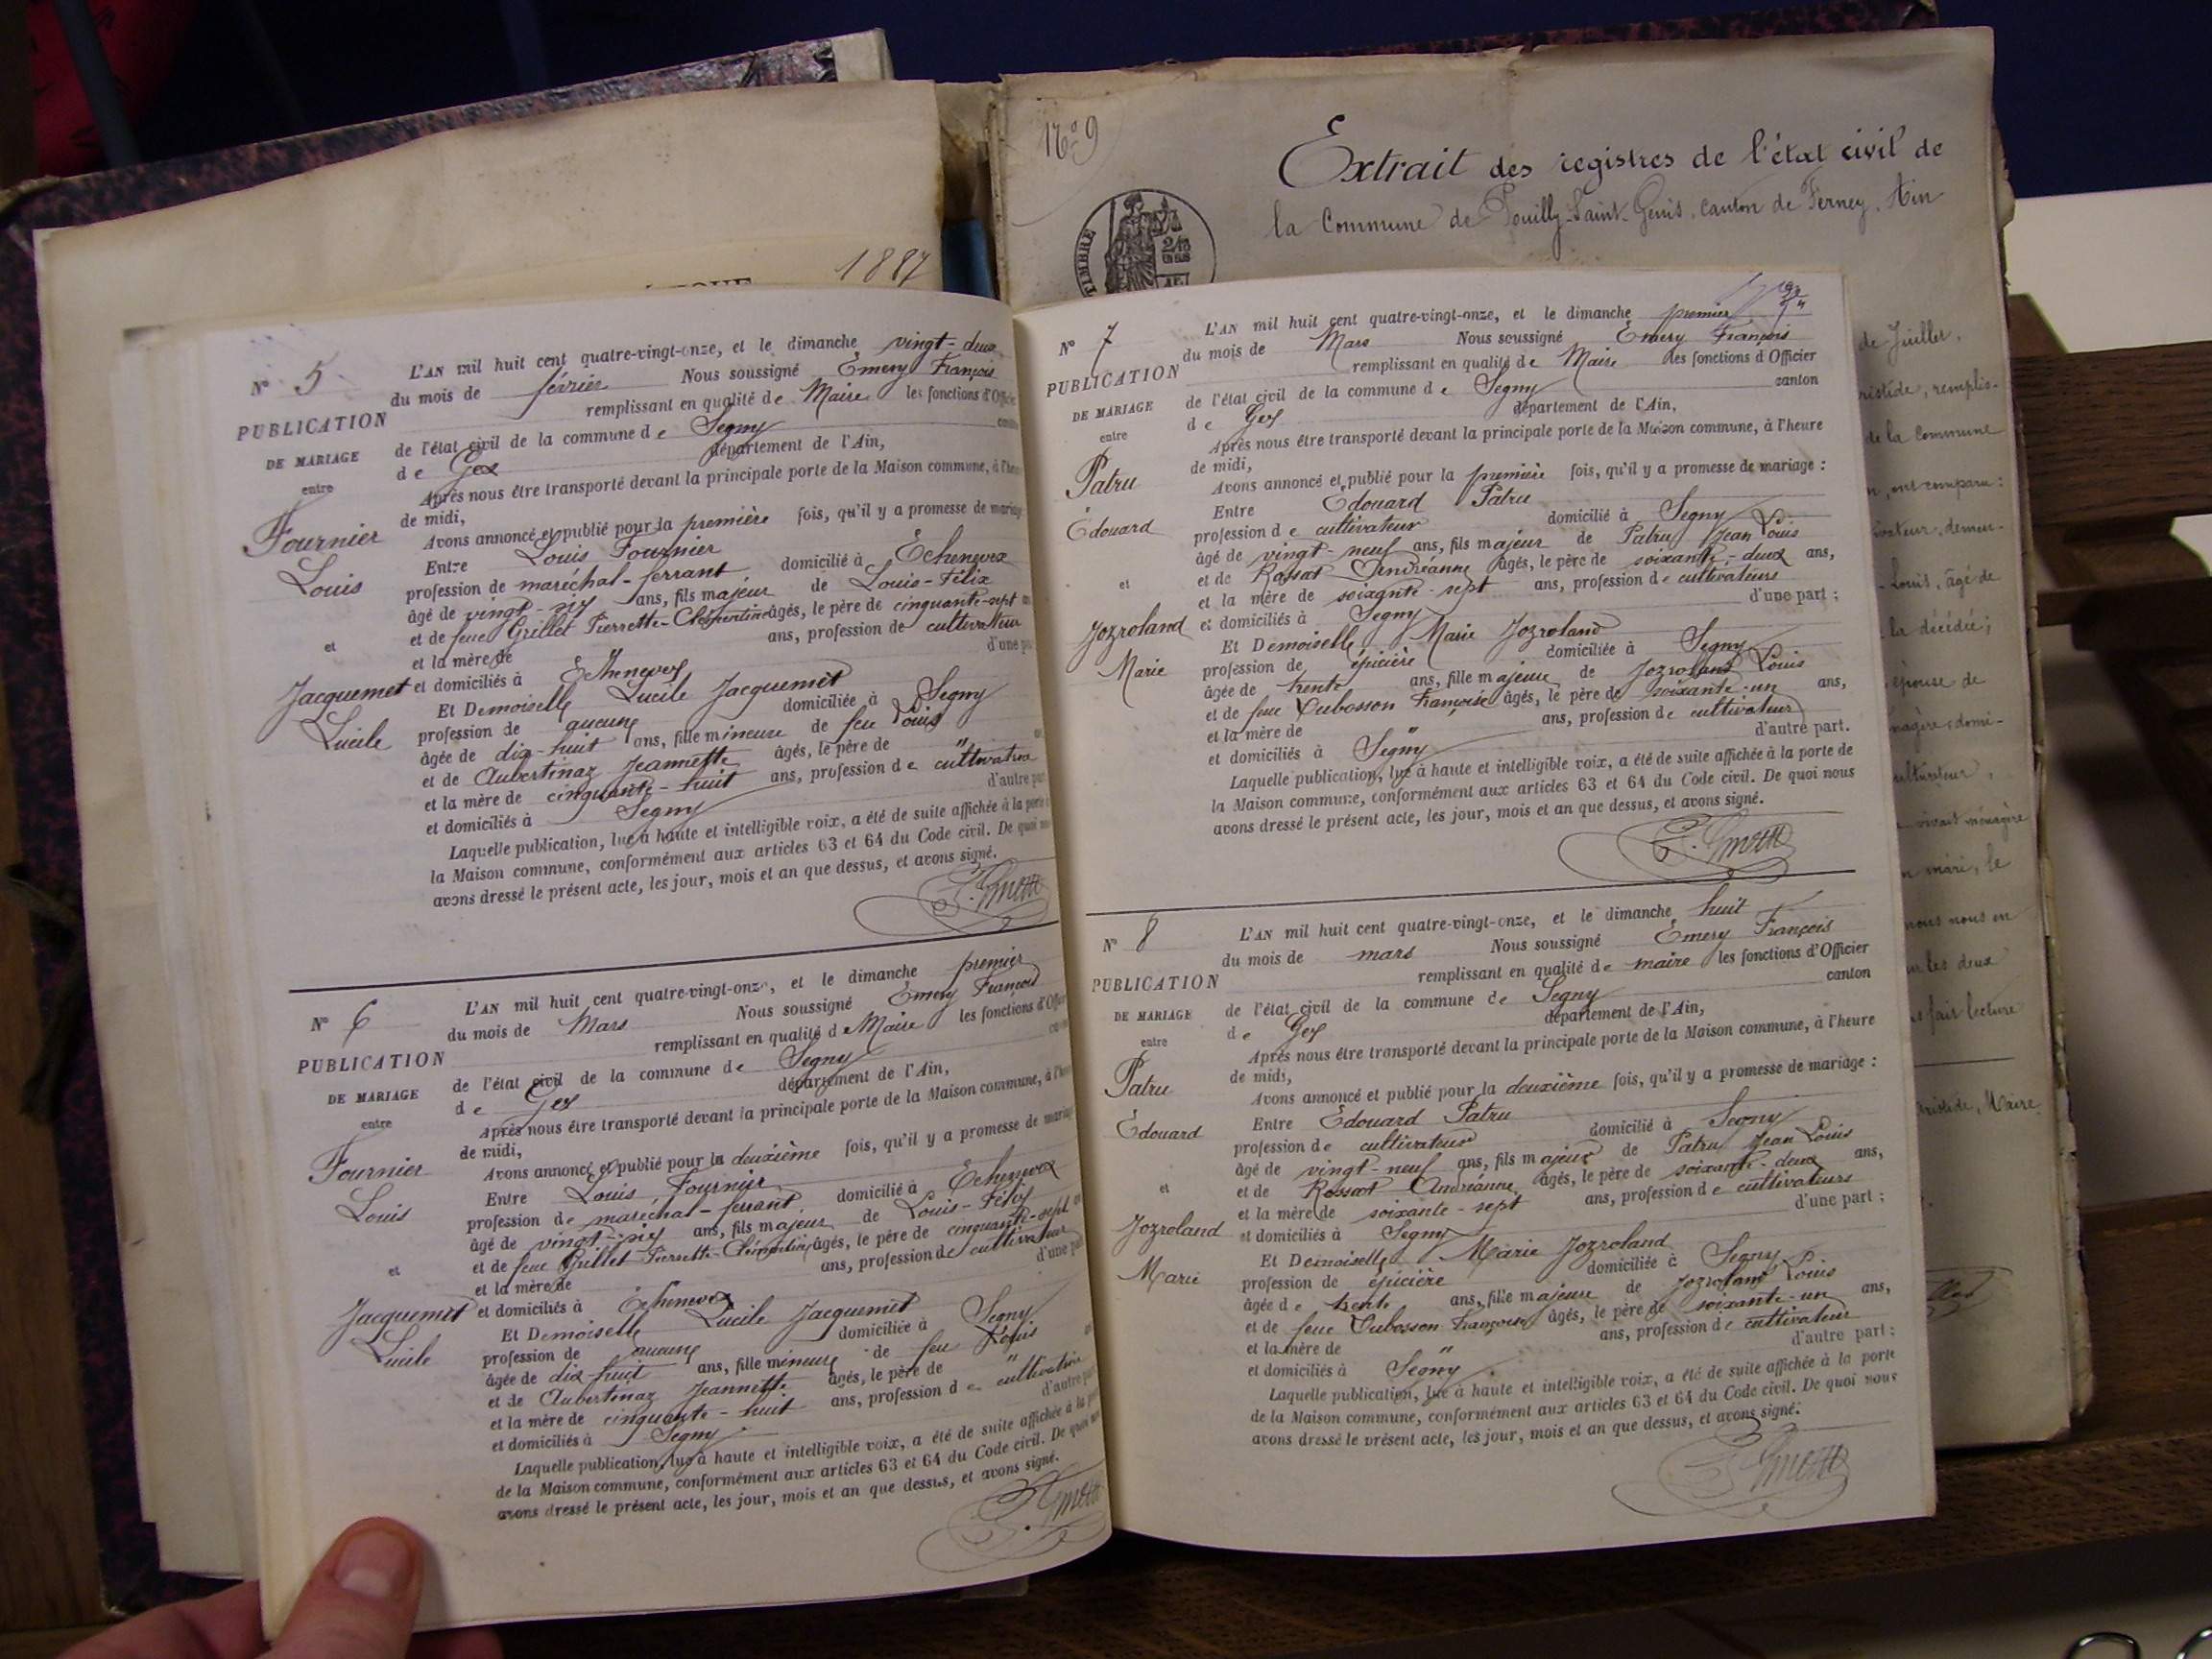 1887
N° 9
Extrait des registres de l'état civil de
la Commune de Pouilly-Saint-Genis, canton de Ferney, Ain
TIMBRE
N° 5
PUBLICATION
DE MARIAGE
entre
Fournier
Louis
et
Jacquemet
Lucile
L'AN mil huit cent quatre-vingt-onze, et le dimanche vingt-deux
du mois de février Nous soussigné Emery François
remplissant en qualité de Maire les fonctions d'Offic
de l'état civil de la commune de Segny
de Gex département de l'Ain,
Après nous être transporté devant la principale porte de la Maison commune, à l'heu
de midi,
Avons annoncé et publié pour la première fois, qu'il y a promesse de mariage
Entre Louis Fournier domicilié à Echenevex
profession de maréchal-ferrant
âgé de vingt-six ans, fils majeur de Louis-Félix
et de feue Grillet Pierrette-Clémentine âgés, le père de cinquante-sept
et la mère de ans, profession de cultivateur
et domiciliés à Echenevex d'une pa
Et Demoiselle Lucile Jacquemet
profession de aucune domiciliée à Segny
âgée de dix-huit ans, fille mineure de feu Louis
et de Aubertinaz Jeannette âgés, le père de "
et la mère de cinquante-huit ans, profession de cultivatrice
et domiciliés à Segny d'autre par
Laquelle publication, lue à haute et intelligible voix, a été de suite affichée à la porte
la Maison commune, conformément aux articles 63 et 64 du Code civil. De quoi nou
avons dressé le présent acte, les jour, mois et an que dessus, et avons signé.
N° 6
PUBLICATION
DE MARIAGE
entre
Fournier
Louis
et
Jacquemet
Lucile
L'AN mil huit cent quatre-vingt-onze, et le dimanche premier
du mois de Mars Nous soussigné Emery François
remplissant en qualité de Maire les fonctions d'Offic
de l'état civil de la commune de Segny
de Gex département de l'Ain,
Après nous être transporté devant la principale porte de la Maison commune, à l'heu
de midi,
Avons annoncé et publié pour la deuxième fois, qu'il y a promesse de mariag
Entre Louis Fournier domicilié à Echenevex
profession de maréchal-ferrant
âgé de vingt-six ans, fils majeur de Louis-Félix
et de feue Grillet Pierrette-Clémentine âgés, le père de cinquante-sept
et la mère de ans, profession de cultivateur
et domiciliés à Echenevex d'une pa
Et Demoiselle Lucile Jacquemet
profession de aucune domiciliée à Segny
âgée de dix-huit ans, fille mineure de feu Louis
et de Aubertinaz Jeannette âgés, le père de "
et la mère de cinquante-huit ans, profession de cultivatrice
et domiciliés à Segny d'autre pa
Laquelle publication, lue à haute et intelligible voix, a été de suite affichée à la po
de la Maison commune, conformément aux articles 63 et 64 du Code civil. De quoi no
avons dressé le présent acte, les jour, mois et an que dessus, et avons signé.
N° 7
PUBLICATION
DE MARIAGE
entre
Patru
Edouard
et
Jozroland
Marie
L'AN mil huit cent quatre-vingt-onze, et le dimanche premier
du mois de Mars Nous soussigné Emery François
remplissant en qualité de Maire les fonctions d'Officier
de l'état civil de la commune de Segny canton
de Gex département de l'Ain,
Après nous être transporté devant la principale porte de la Maison commune, à l'heure
de midi,
Avons annoncé et publié pour la première fois, qu'il y a promesse de mariage :
Entre Edouard Patru
profession de cultivateur domicilié à Segny
âgé de vingt-neuf ans, fils majeur de Patru Jean Louis
et de Rossat Andréanne âgés, le père de soixante-deux ans,
et la mère de soixante-sept ans, profession de cultivateurs
et domiciliés à Segny d'une part ;
Et Demoiselle Marie Jozroland
profession de épicière domiciliée à Segny
âgée de trente ans, fille majeure de Jozroland Louis
et de feue Dubosson Françoise âgés, le père de soixante-un ans,
et la mère de " ans, profession de cultivateur
et domiciliés à Segny d'autre part.
Laquelle publication, lue à haute et intelligible voix, a été de suite affichée à la porte de
la Maison commune, conformément aux articles 63 et 64 du Code civil. De quoi nous
avons dressé le présent acte, les jour, mois et an que dessus, et avons signé.
N° 8
PUBLICATION
DE MARIAGE
entre
Patru
Edouard
et
Jozroland
Marie
L'AN mil huit cent quatre-vingt-onze, et le dimanche huit
du mois de mars Nous soussigné Emery François
remplissant en qualité de maire les fonctions d'Officier
de l'état civil de la commune de Segny canton
de Gex département de l'Ain,
Après nous être transporté devant la principale porte de la Maison commune, à l'heure
de midi,
Avons annoncé et publié pour la deuxième fois, qu'il y a promesse de mariage :
Entre Edouard Patru
profession de cultivateur domicilié à Segny
âgé de vingt-neuf ans, fils majeur de Patru Jean Louis
et de Rossat Andréanne âgés, le père de soixante-deux ans,
et la mère de soixante-sept ans, profession de cultivateurs
et domiciliés à Segny d'une part ;
Et Demoiselle Marie Jozroland
profession de épicière domiciliée à Segny
âgée de trente ans, fille majeure de Jozroland Louis
et de feue Dubosson Françoise âgés, le père de soixante-un ans,
et la mère de " ans, profession de cultivateur
et domiciliés à Segny d'autre part ;
Laquelle publication, lue à haute et intelligible voix, a été de suite affichée à la porte
de la Maison commune, conformément aux articles 63 et 64 du Code civil. De quoi nous
avons dressé le présent acte, les jour, mois et an que dessus, et avons signé.
de Juillet,
Aristide, remplis-
de la Commune
ont comparu :
demeu-
Louis, âgé de
la décédée ;
épouse de
domi-
vivait ménagère
mari, le
nous nous en
les deux
fait lecture
Aristide, Maire